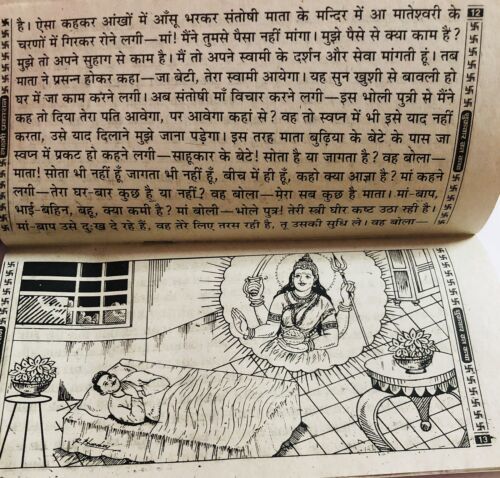 12
है। ऐसा कहकर आंखों में आँसू भरकर संतोषी माता के मन्दिर में आ मातेश्वरी के
चरणों में गिरकर रोने लगी—मां! मैंने तुमसे पैसा नहीं मांगा। मुझे पैसे से क्या काम है?
मुझे तो अपने सुहाग से काम है। मैं तो अपने स्वामी के दर्शन और सेवा मांगती हूं। तब
माता ने प्रसन्न होकर कहा—जा बेटी, तेरा स्वामी आवेगा। यह सुन खुशी से बावली हो
घर में जा काम करने लगी। अब संतोषी मां विचार करने लगी—इस भोली पुत्री से मैंने
कह तो दिया तेरा पति आवेगा, पर आवेगा कहां से? वह तो स्वप्न में भी इसे याद नहीं
करता, उसे याद दिलाने मुझे जाना पड़ेगा। इस तरह माता बुढ़िया के बेटे के पास जा
स्वप्न में प्रकट हो कहने लगी—साहूकार के बेटे! सोता है या जागता है? वह बोला—
माता! सोता भी नहीं हूँ, जागता भी नहीं हूँ, बीच में ही हूँ, कहो क्या आज्ञा है? मां कहने
लगी—तेरा घर-बार कुछ है या नहीं? वह बोला—मेरा सब कुछ है माता। मां-बाप,
भाई-बहिन, बहू, क्या कमी है? मां बोली—भोले पुत्र! तेरी स्त्री घोर कष्ट उठा रही है।
मां-बाप उसे दुःख दे रहे हैं, वह तेरे लिए तरस रही है, तू उसकी सुधि ले। वह बोला—
13